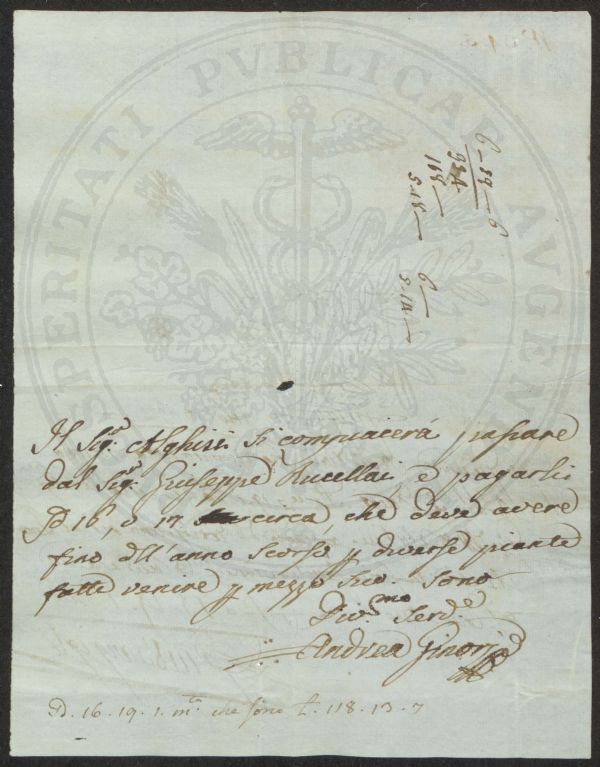 PROSPERITATI PUBLICAE AUGEN
6 — 89 — 6
934
168
5.18
6
5.11
Il Sig.r Alghisi si compiacerà passare
dal Sig.r Giuseppe Rucellai e pagarli
16, o 17 circa, che deve avere
fino dell anno scorso p diverse piante
fatte venire p mezzo suo. Sono
Div.mo Serv.e
Andrea Ginori
16. 19. 1. m.ta che sono £. 118. 13. 7